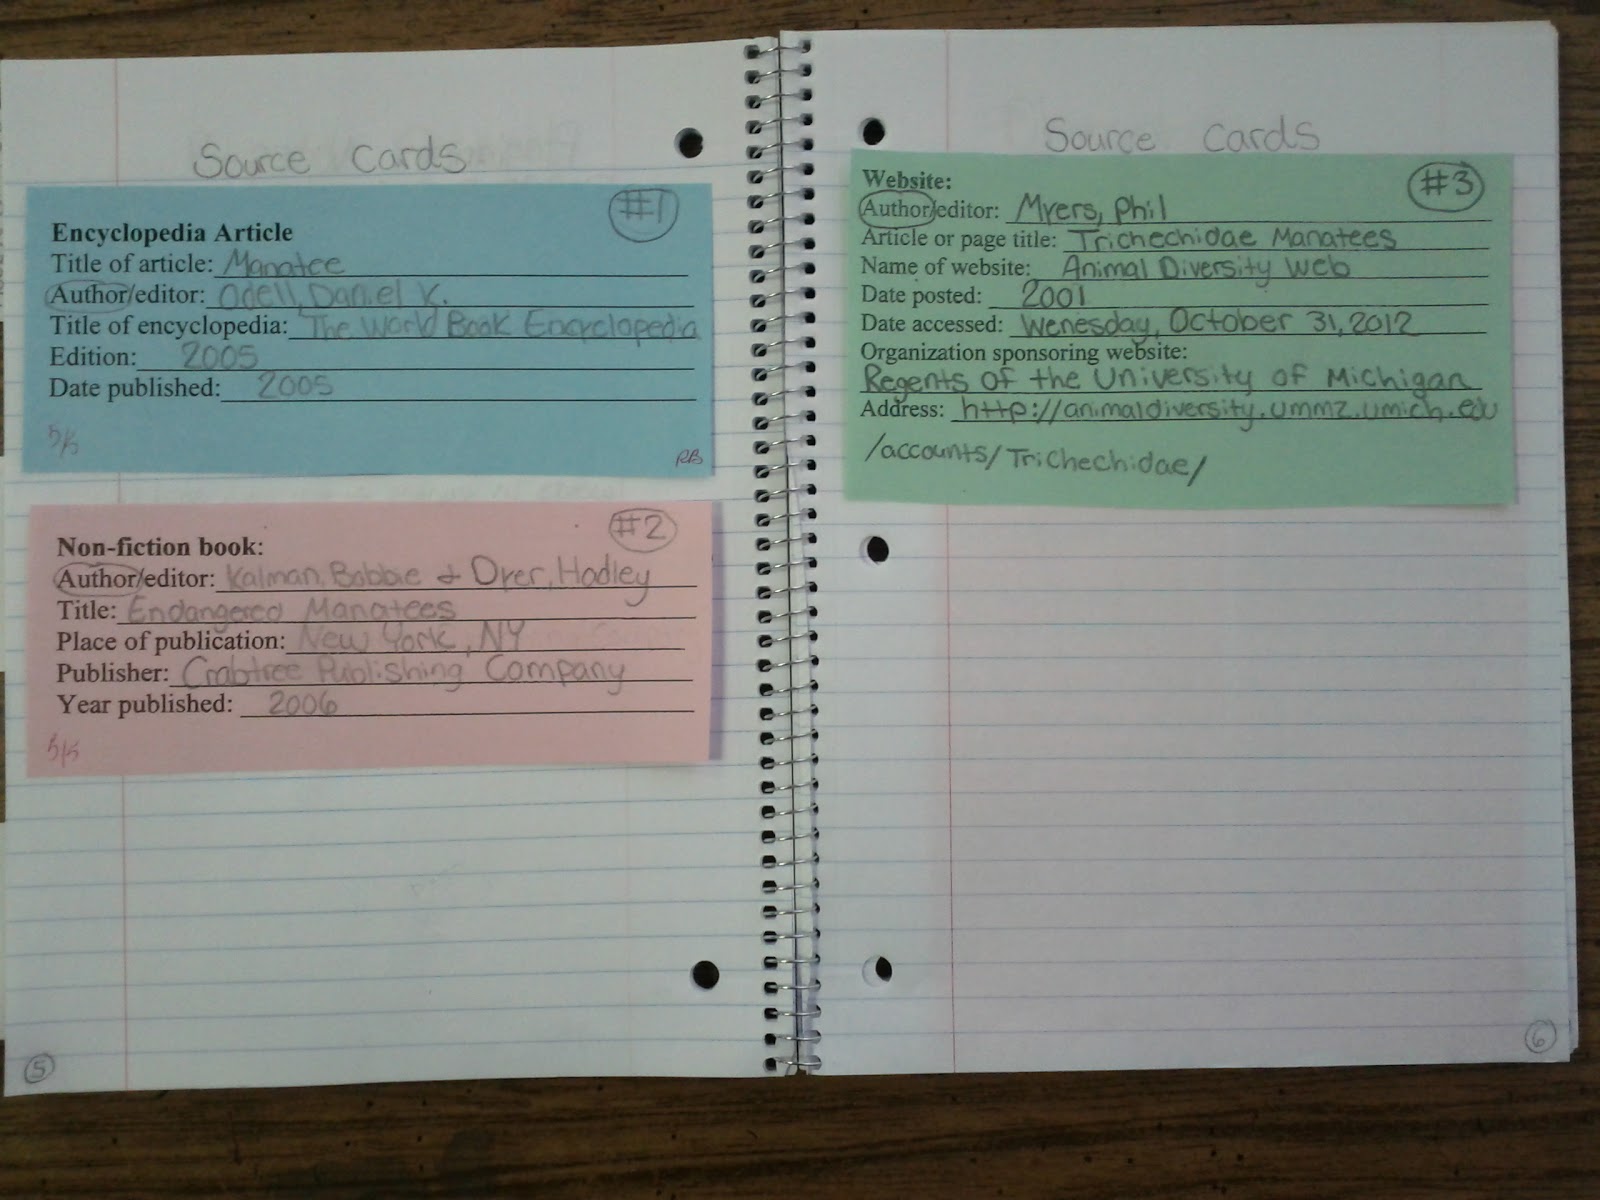 Source Cards
#1
Encyclopedia Article
Title of article: Manatee
Author/editor: Odell, Daniel K.
Title of encyclopedia: The World Book Encyclopedia
Edition: 2005
Date published: 2005
5/5
RB
#2
Non-fiction book:
Author/editor: Kalman, Bobbie & Dyer, Hadley
Title: Endangered Manatees
Place of publication: New York, NY
Publisher: Crabtree Publishing Company
Year published: 2006
5/5
5
Source Cards
#3
Website:
Author/editor: Myers, Phil
Article or page title: Trichechidae Manatees
Name of website: Animal Diversity Web
Date posted: 2001
Date accessed: Wenesday, October 31, 2012
Organization sponsoring website:
Regents of the University of Michigan
Address: http://animaldiversity.ummz.umich.edu
/accounts/Trichechidae/
6